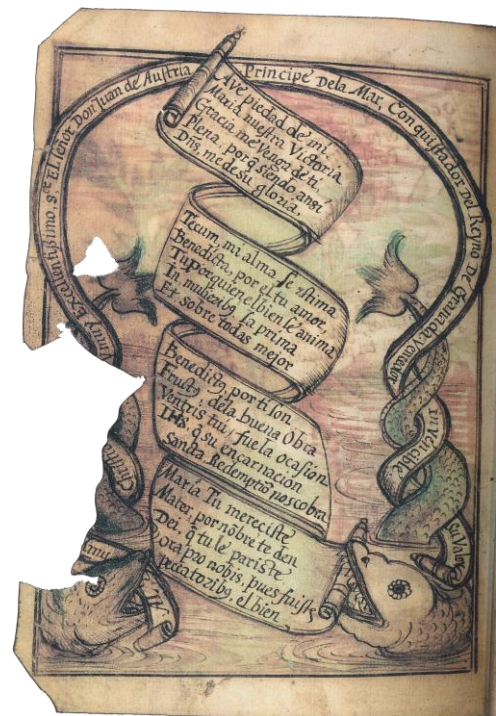 Al muy
Christi
y muy Excelentissimo, s.or El señor Don Juan de Austria Principe Dela Mar, Conquistador Del Reyno De Granada Vencedor invencible su Valor
Ave piedad de mi.
Maria nuestra Victoria
Gracia me venga de ti.
Plena, porq̃ siendo ansi
Dñs, me de su gloria.
Tecum, mi alma se estima
Benedicta, por el tu amor
Tu porquien el bien se anima
In mulierib9 la prima
Et sobre todas mejor
Benedict9, por ti son
Fruct9, dela buena Obra
Ventris tui, fue la ocasión
IHS, q̃ su encarnación
Sancta Redemptiõ nos cobra
Maria Tu mereciste
Mater, por nõbre te den
Dei, q̃ tu le pariste
Ora pro nobis, pues fuiste
Peccatorib9, el bien